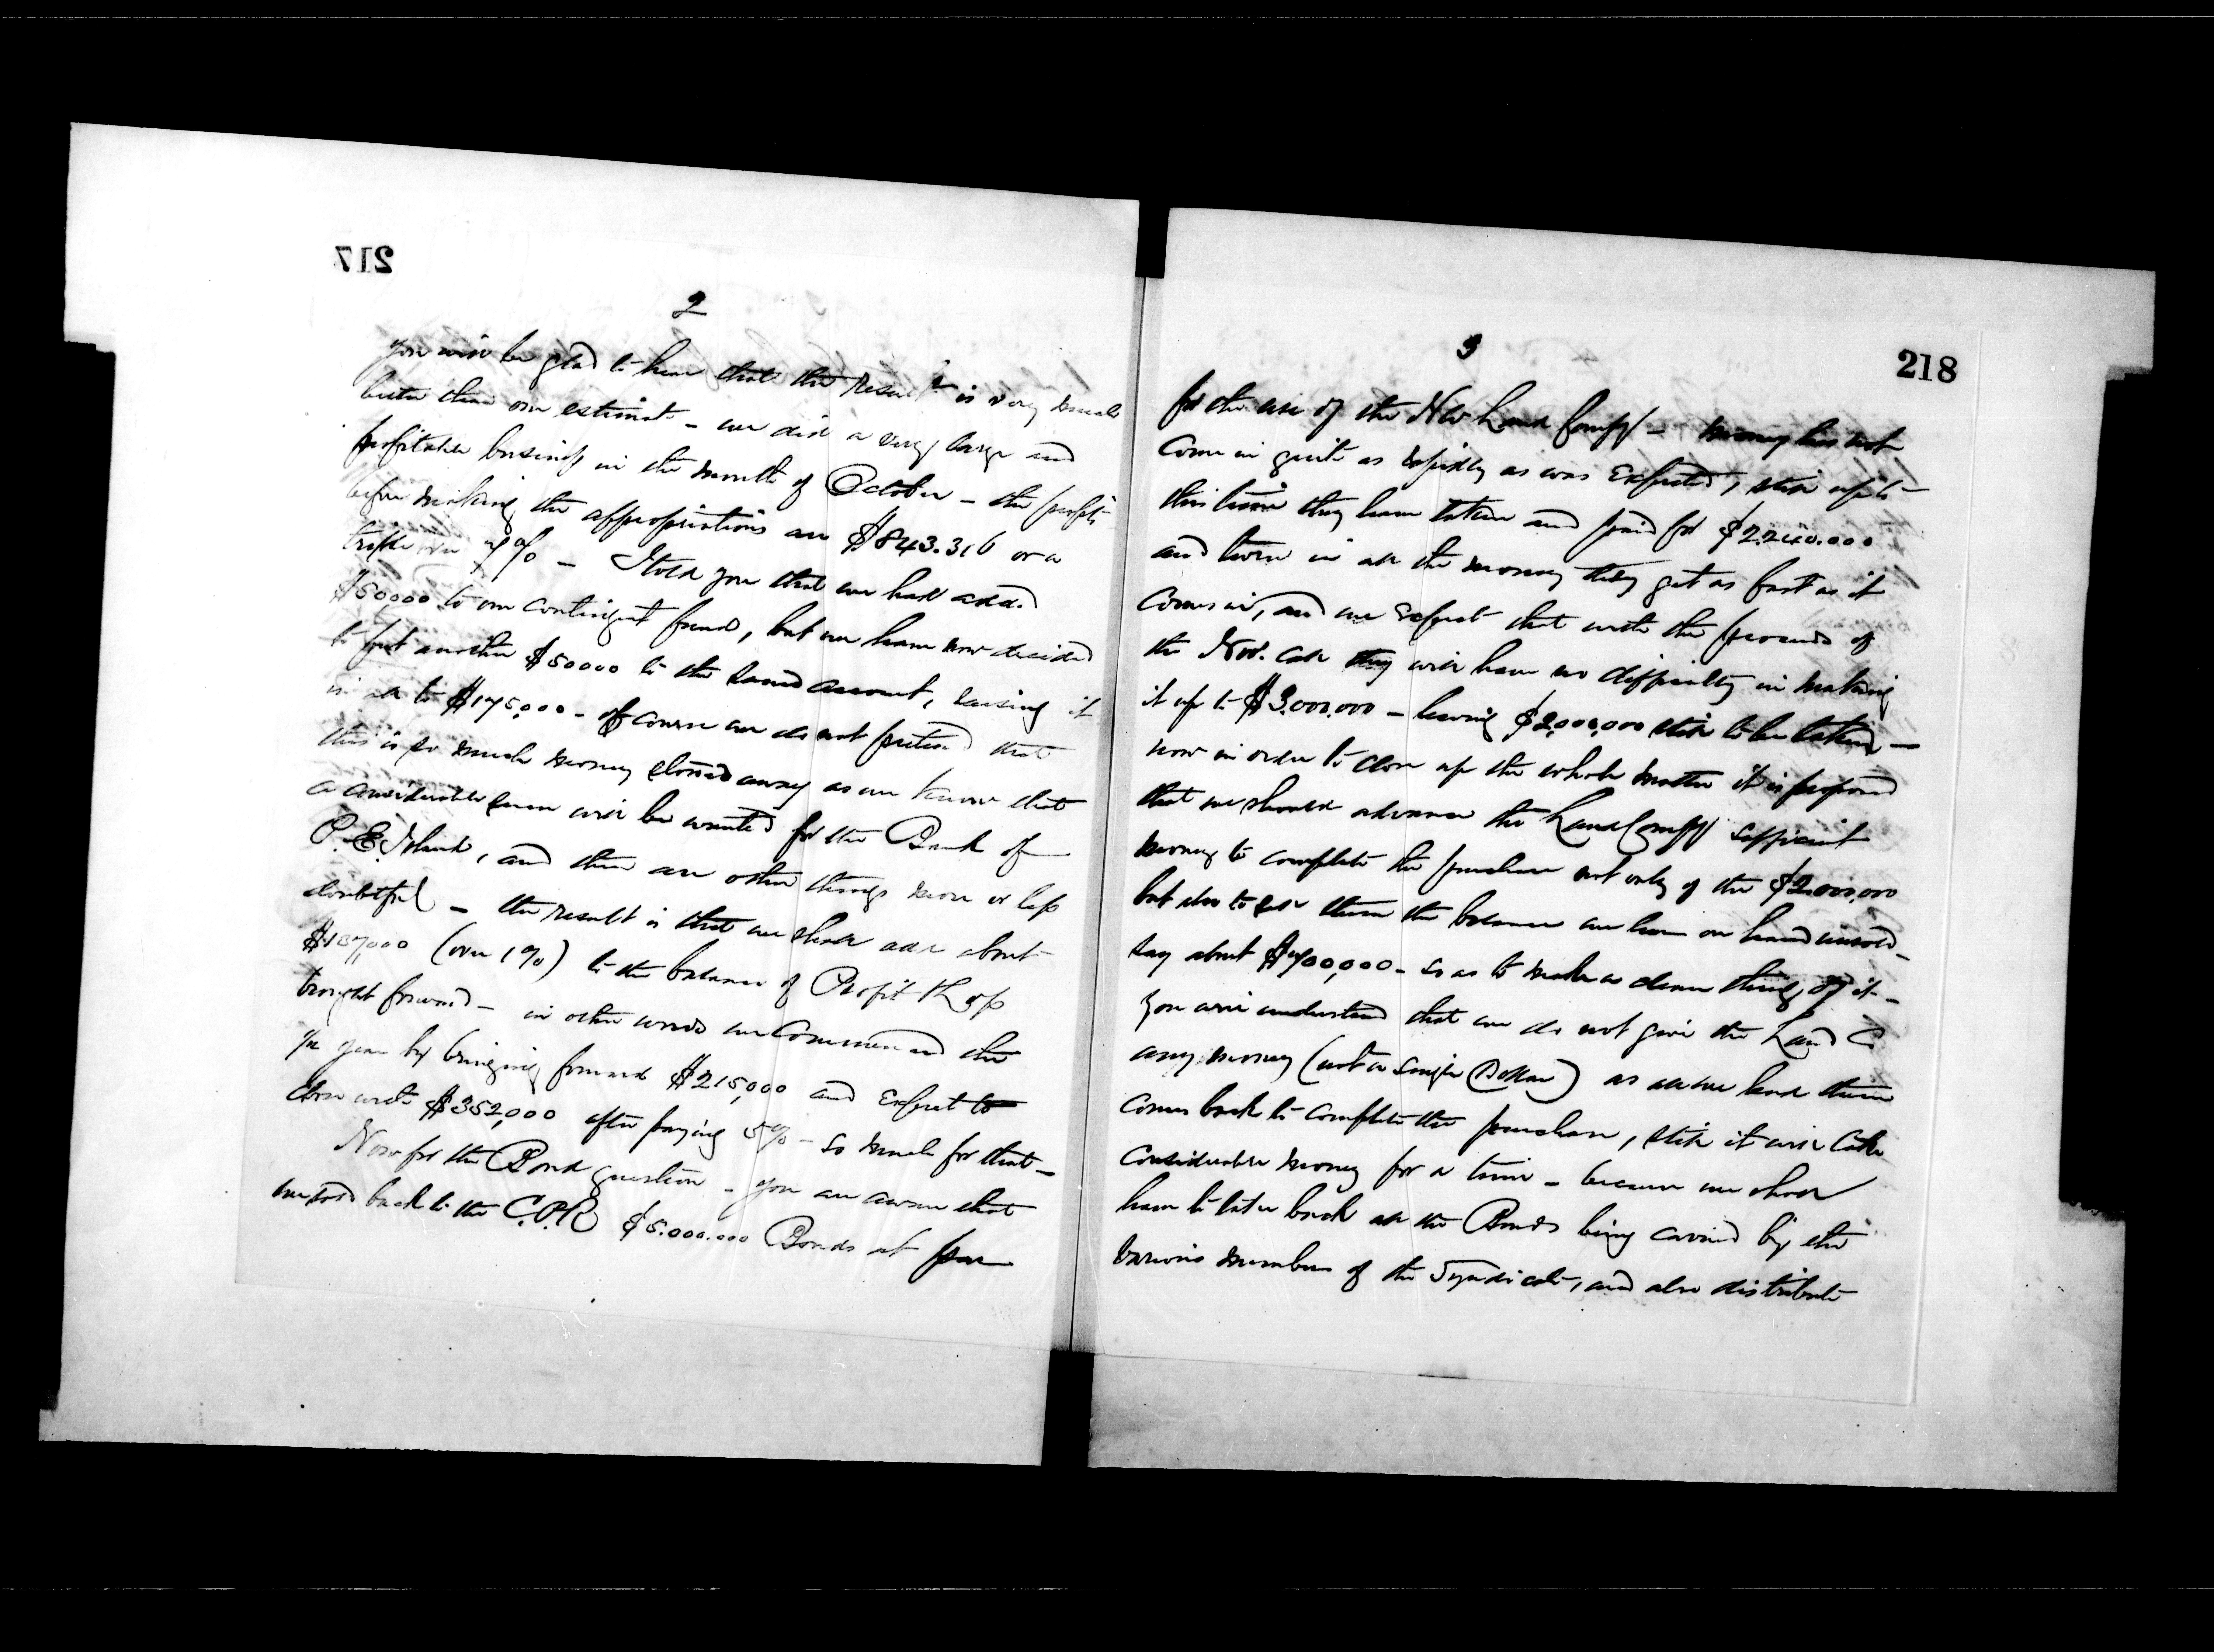 217
2
you will be glad to hear that the result is very much
better than our estimate - we did a very large and
profitable business in the month of October - the profits
before making the appropriations are $843.316 or a
trifle over 7% - I told you that we had added
$50,000 to our contingent fund, but we have now decided
to put another $50000 to the same account, raising it
in all to $175,000 - of course we do not pretend that
this is so much money stowed away as we know that
a considerable sum will be wanted for the Bank of
P. E. Island, and there are other things more or less
doubtful - the result is that we shall add about
$137,000 (over 1%) to the balance of Profit & Loss
brought forward - in other words we commenced the
1/2 year by bringing forward $215,000 and expect to
close with $352,000 after paying 5% - so much for that -
Now for the Bond question - you are aware that
we sold back to the C.P.R $5.000.000 Bonds at par
218
3
for the use of the NW Land Compy - money has not
come in quite as rapidly as was expected, still up to
this time they have taken and paid for $2.240.000
and turn in all the money they get as fast as it
comes in, and we expect that with the proceeds of
the Nov. call they will have no difficulty in making
it up to $3.000.000 - leaving $2,000,000 still to be taken -
now in order to close up the whole matter it is proposed
that we should advance the Land Compy sufficient
money to complete the purchase not only of the $2.000,000
but also to sell them the balance we have on hand unsold -
say about $700,000 - so as to make a clean thing of it -
You will understand that we do not give the Land Co
any money (not a single Dollar) as all we lend them
comes back to complete the purchase, still it will take
considerable money for a time - because we shall
have to take back all the Bonds being carried by the
various members of the Syndicate, and also distribute